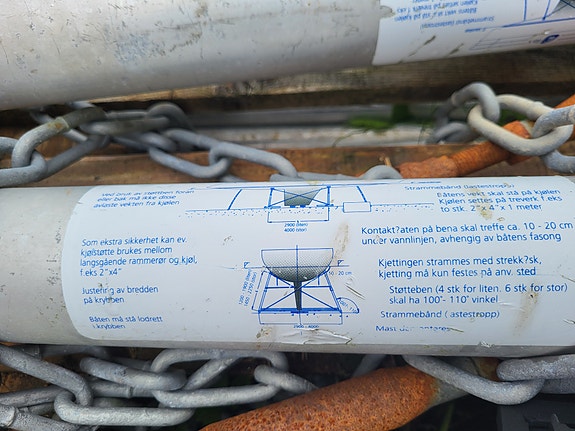 Båtens vekt skal stå på kjølen
Kjølen settes på treverk f.eks
Strammebånd (lastestropp)
Ved bruk av støtteben foran
eller bak må ikke disse
avlaste vekten fra kjølen
2900 (liten)
4000 (stor)
Strammebånd (lastestropp)
Båtens vekt skal stå på kjølen
Kjølen settes på treverk f.eks
to stk. 2"x 4"x 1 meter
Som ekstra sikkerhet kan ev.
kjølstøtte brukes mellom
langsgående rammerør og kjøl,
f.eks 2"x4"
Justering av bredden
på krybben
Båten må stå loddrett
i krybben
10 - 20 cm
Kontakt?aten på bena skal treffe ca. 10 - 20 cm
under vannlinjen, avhengig av båtens fasong
Kjettingen strammes med strekk?sk,
kjetting må kun festes på anv. sted
Støtteben (4 stk for liten. 6 stk for stor)
skal ha 100°- 110° vinkel
Strammebånd (lastestropp)